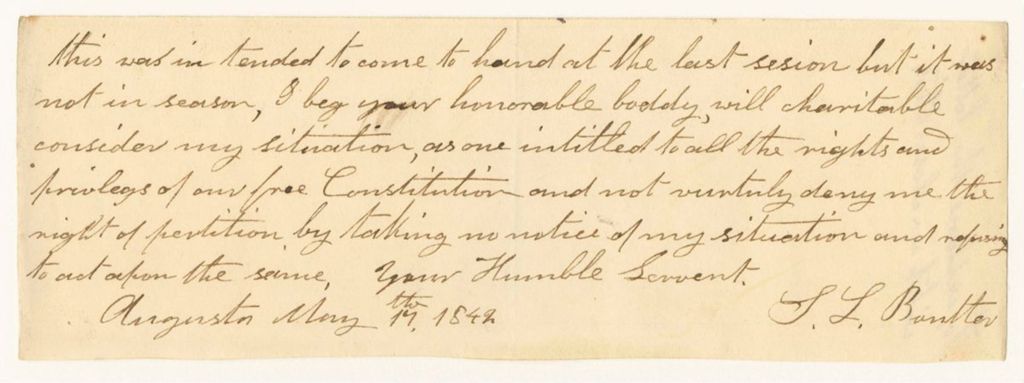 this was in tended to come to hand at the last sesion but it was
not in season, I beg your honorable boddy, will charitable
consider my situation, as one intitled to all the rights and
privlegs of our free Constitution and not vurtuly deny me the
right of pertition by taking no notice of my situation and refusing
to act apon the same, Your Humble Servent.
Augusta May 17th, 1842 S. L. Boulter